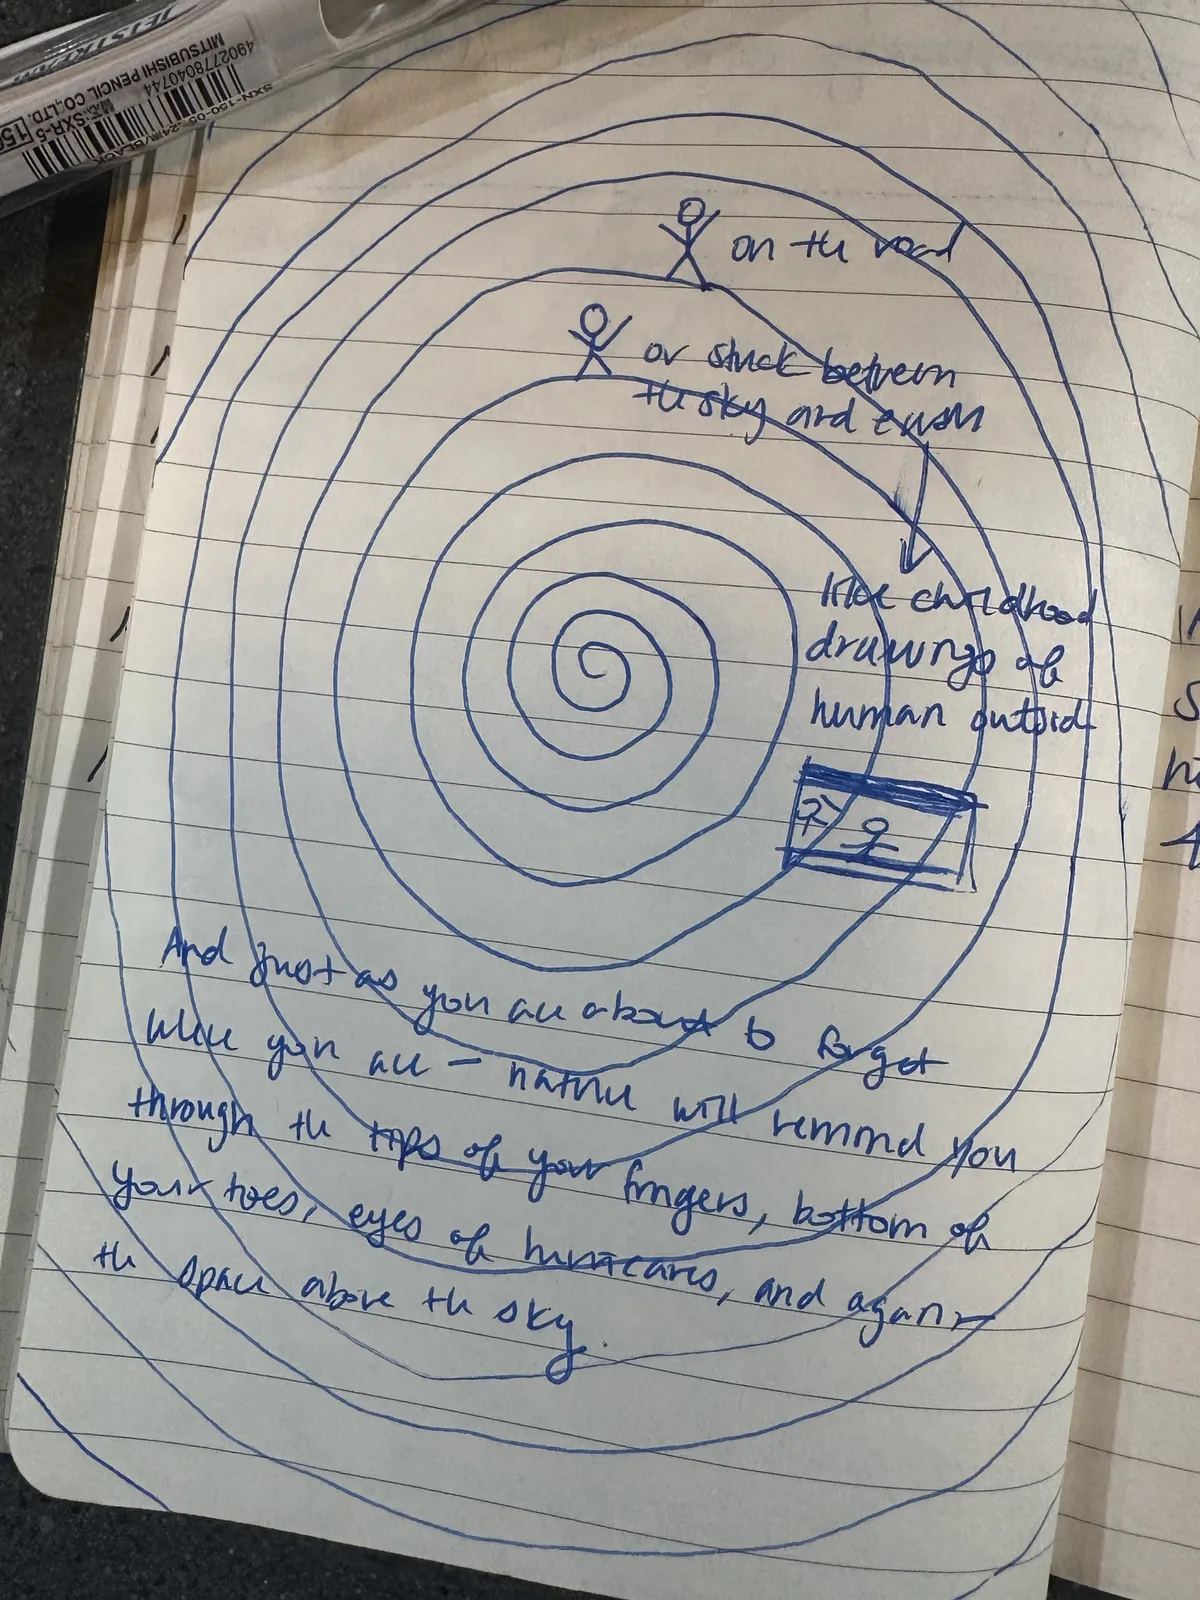 JETSTREAM
MITSUBISHI PENCIL CO.,LTD.
4902778040744
SXR-5
SXN-150-05 24 BLACK
on the road
or stuck between
the sky and earth
like childhood
drawings of
human outside
And just as you are about to forget
where you are – nature will remind you
through the tips of your fingers, bottom of
your toes, eyes of hurricanes, and again –
the space above the sky.